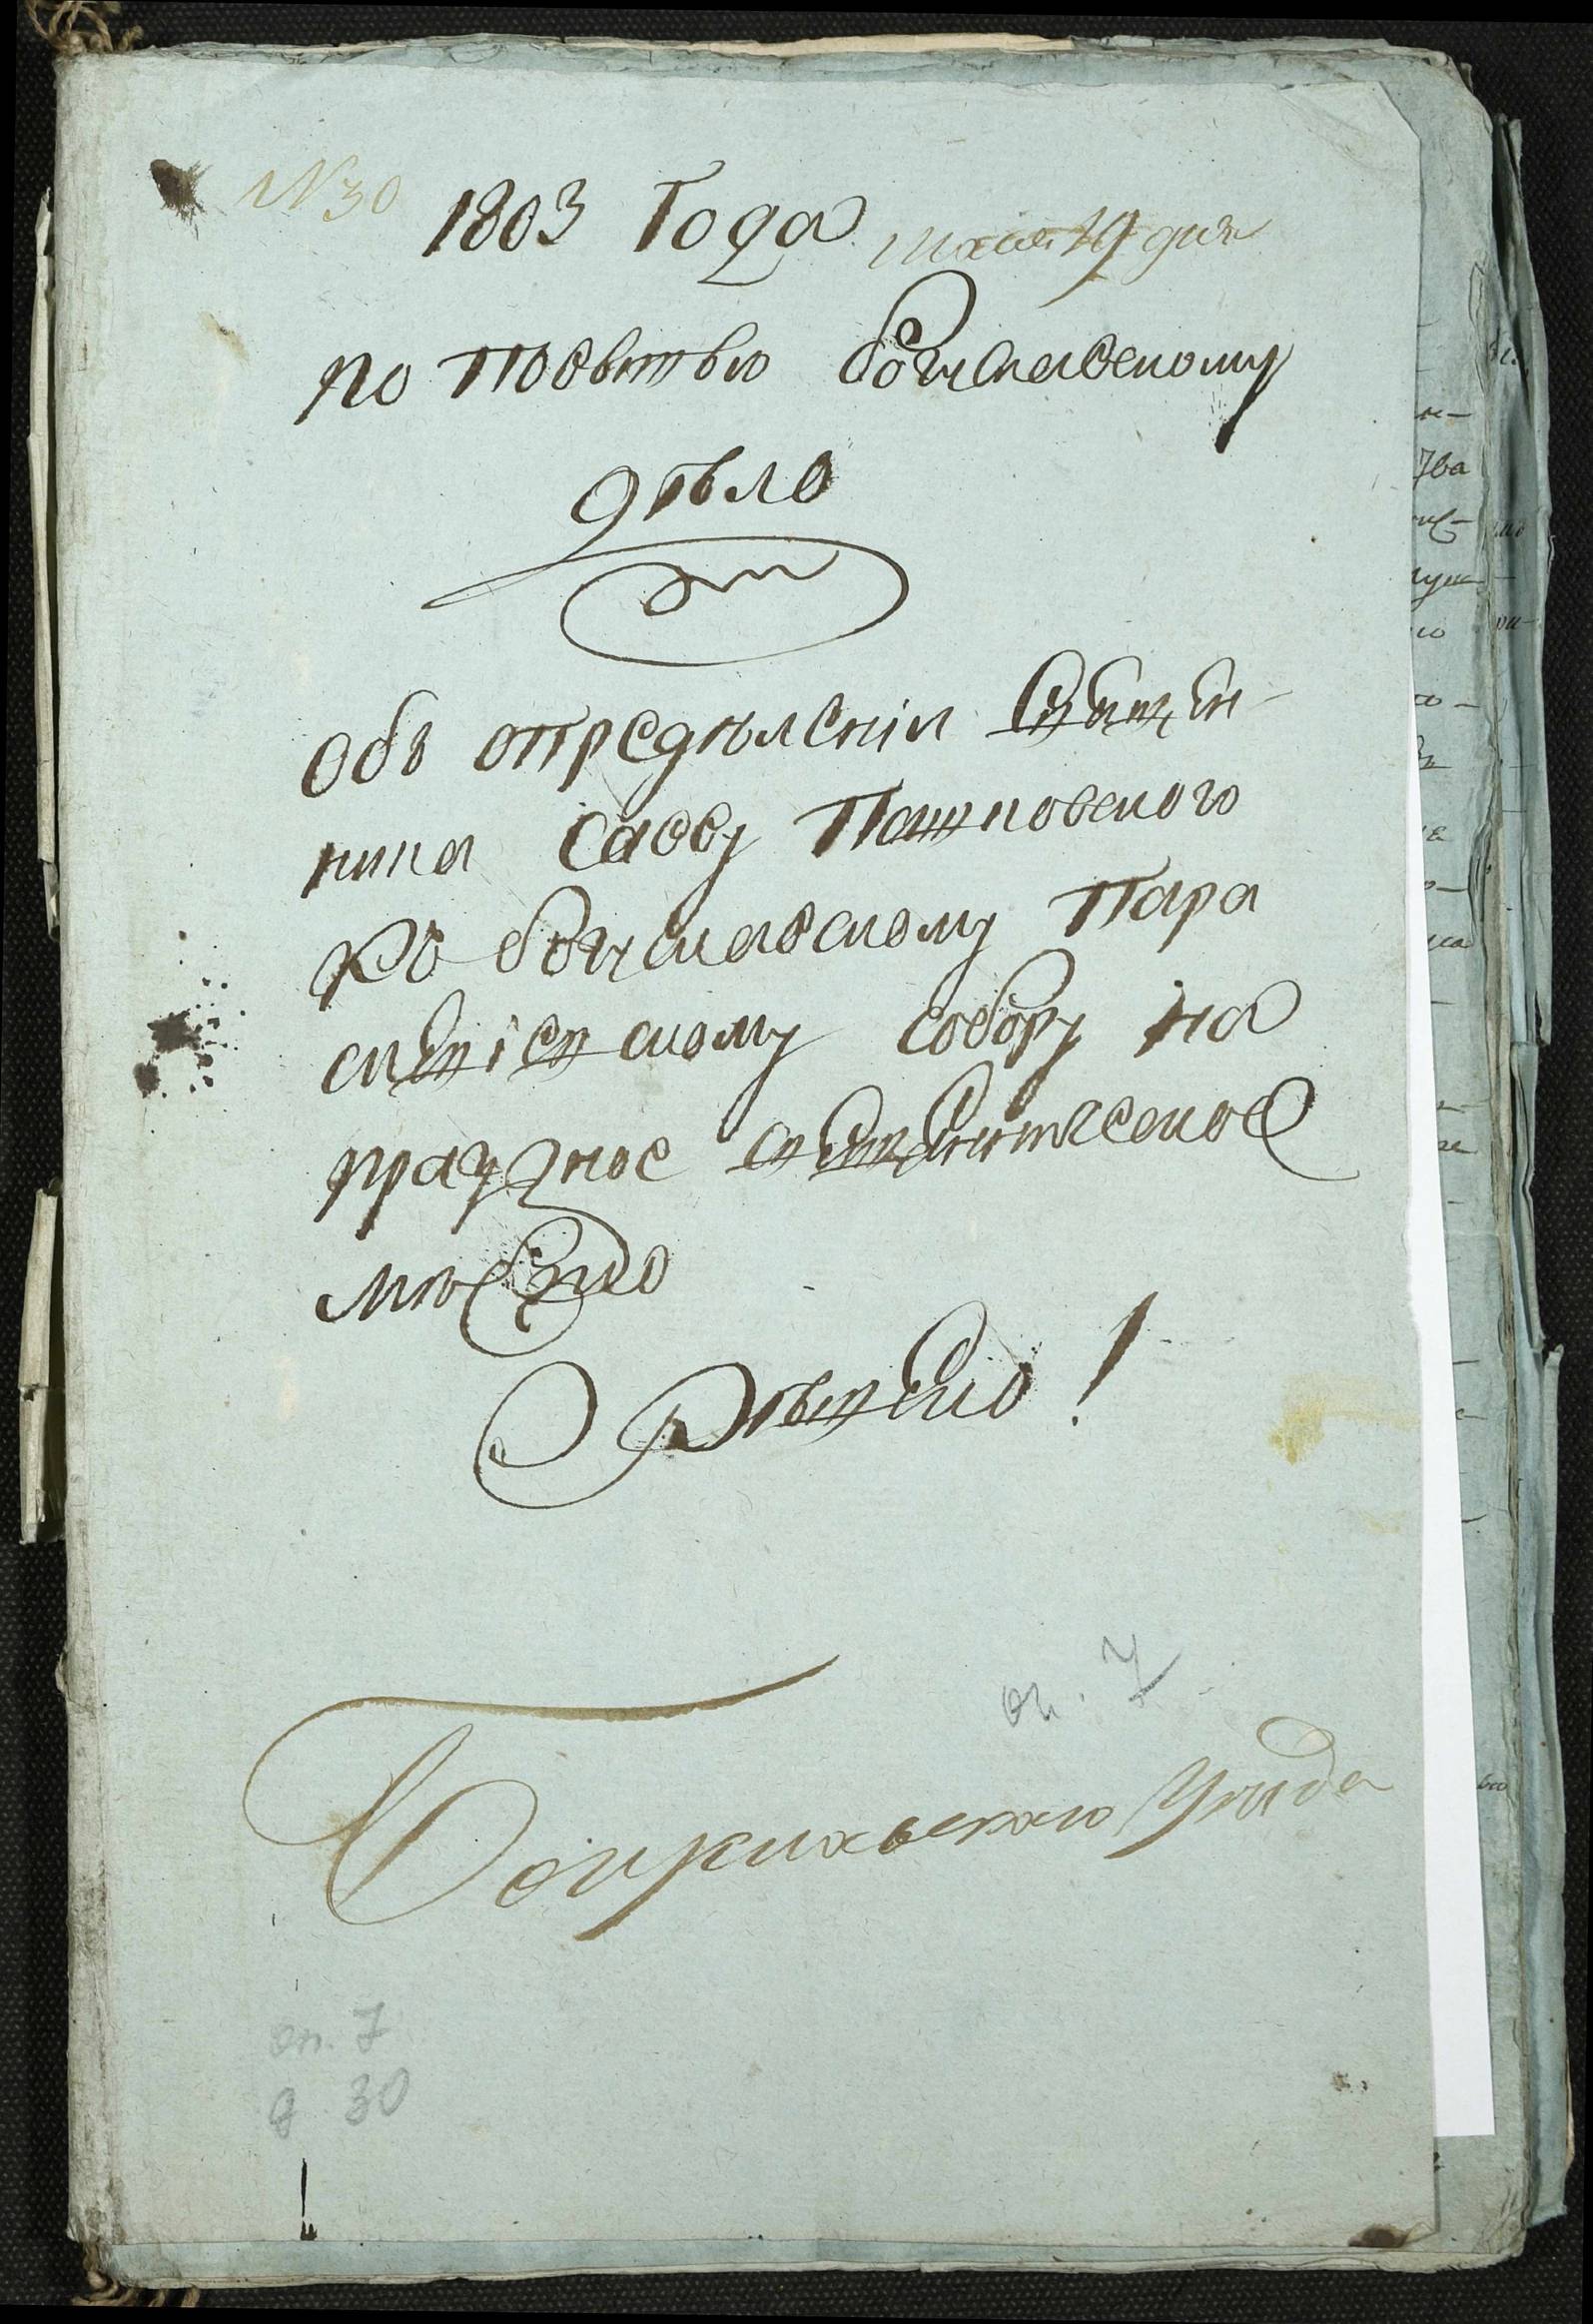 №30
1803 Года маія 19 дня
по повѣтѣю богуславскому
дѣло
Объ опредѣленіи Священ-
ника Савву Патковского
къ богуславскому Пара
скевіевскому собору на
праздное священническое
мѣсто
Рѣшено!
оп. 7
Богуславскаго Уезда
оп. 7
д 30